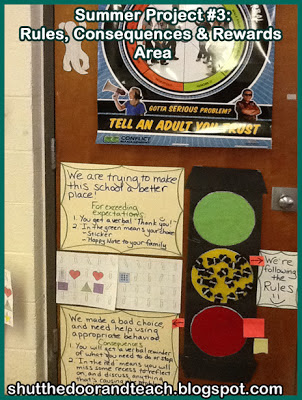 Summer Project #3:
Rules, Consequences & Rewards
Area
GOTTA SERIOUS PROBLEM?
TELL AN ADULT YOU TRUST
CONFLICT
We are trying to make
this school a better
place!
For exceeding
expectations:
1. You get a verbal "Thank you!"
2. In the green means your choice
- Sticker
- Happy Note to your family
We're
following
the
Rules
We made a bad choice
and need help using
appropriate behavior
Consequences
1. You will get a verbal reminder
of what you need to do or stop.
2. In the red means you will
miss some recess to reflect
on, and discuss anything
that's causing
shutthedoorandteach.blogspot.com